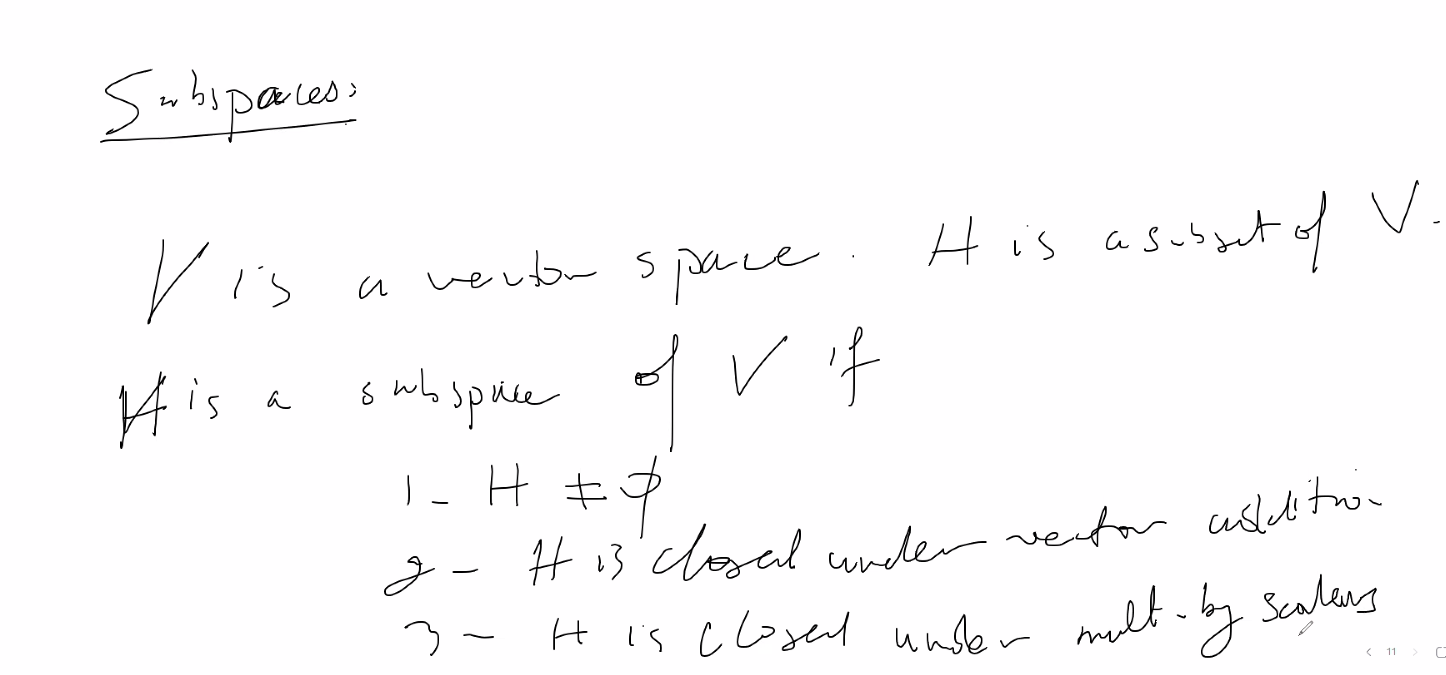 Subspaces:
V is a vector space. H is a subset of V.
H is a subspace of V if
1- H ≠ ϕ
2- H is closed under vector addition
3- H is closed under mult. by scalars
< 11 >